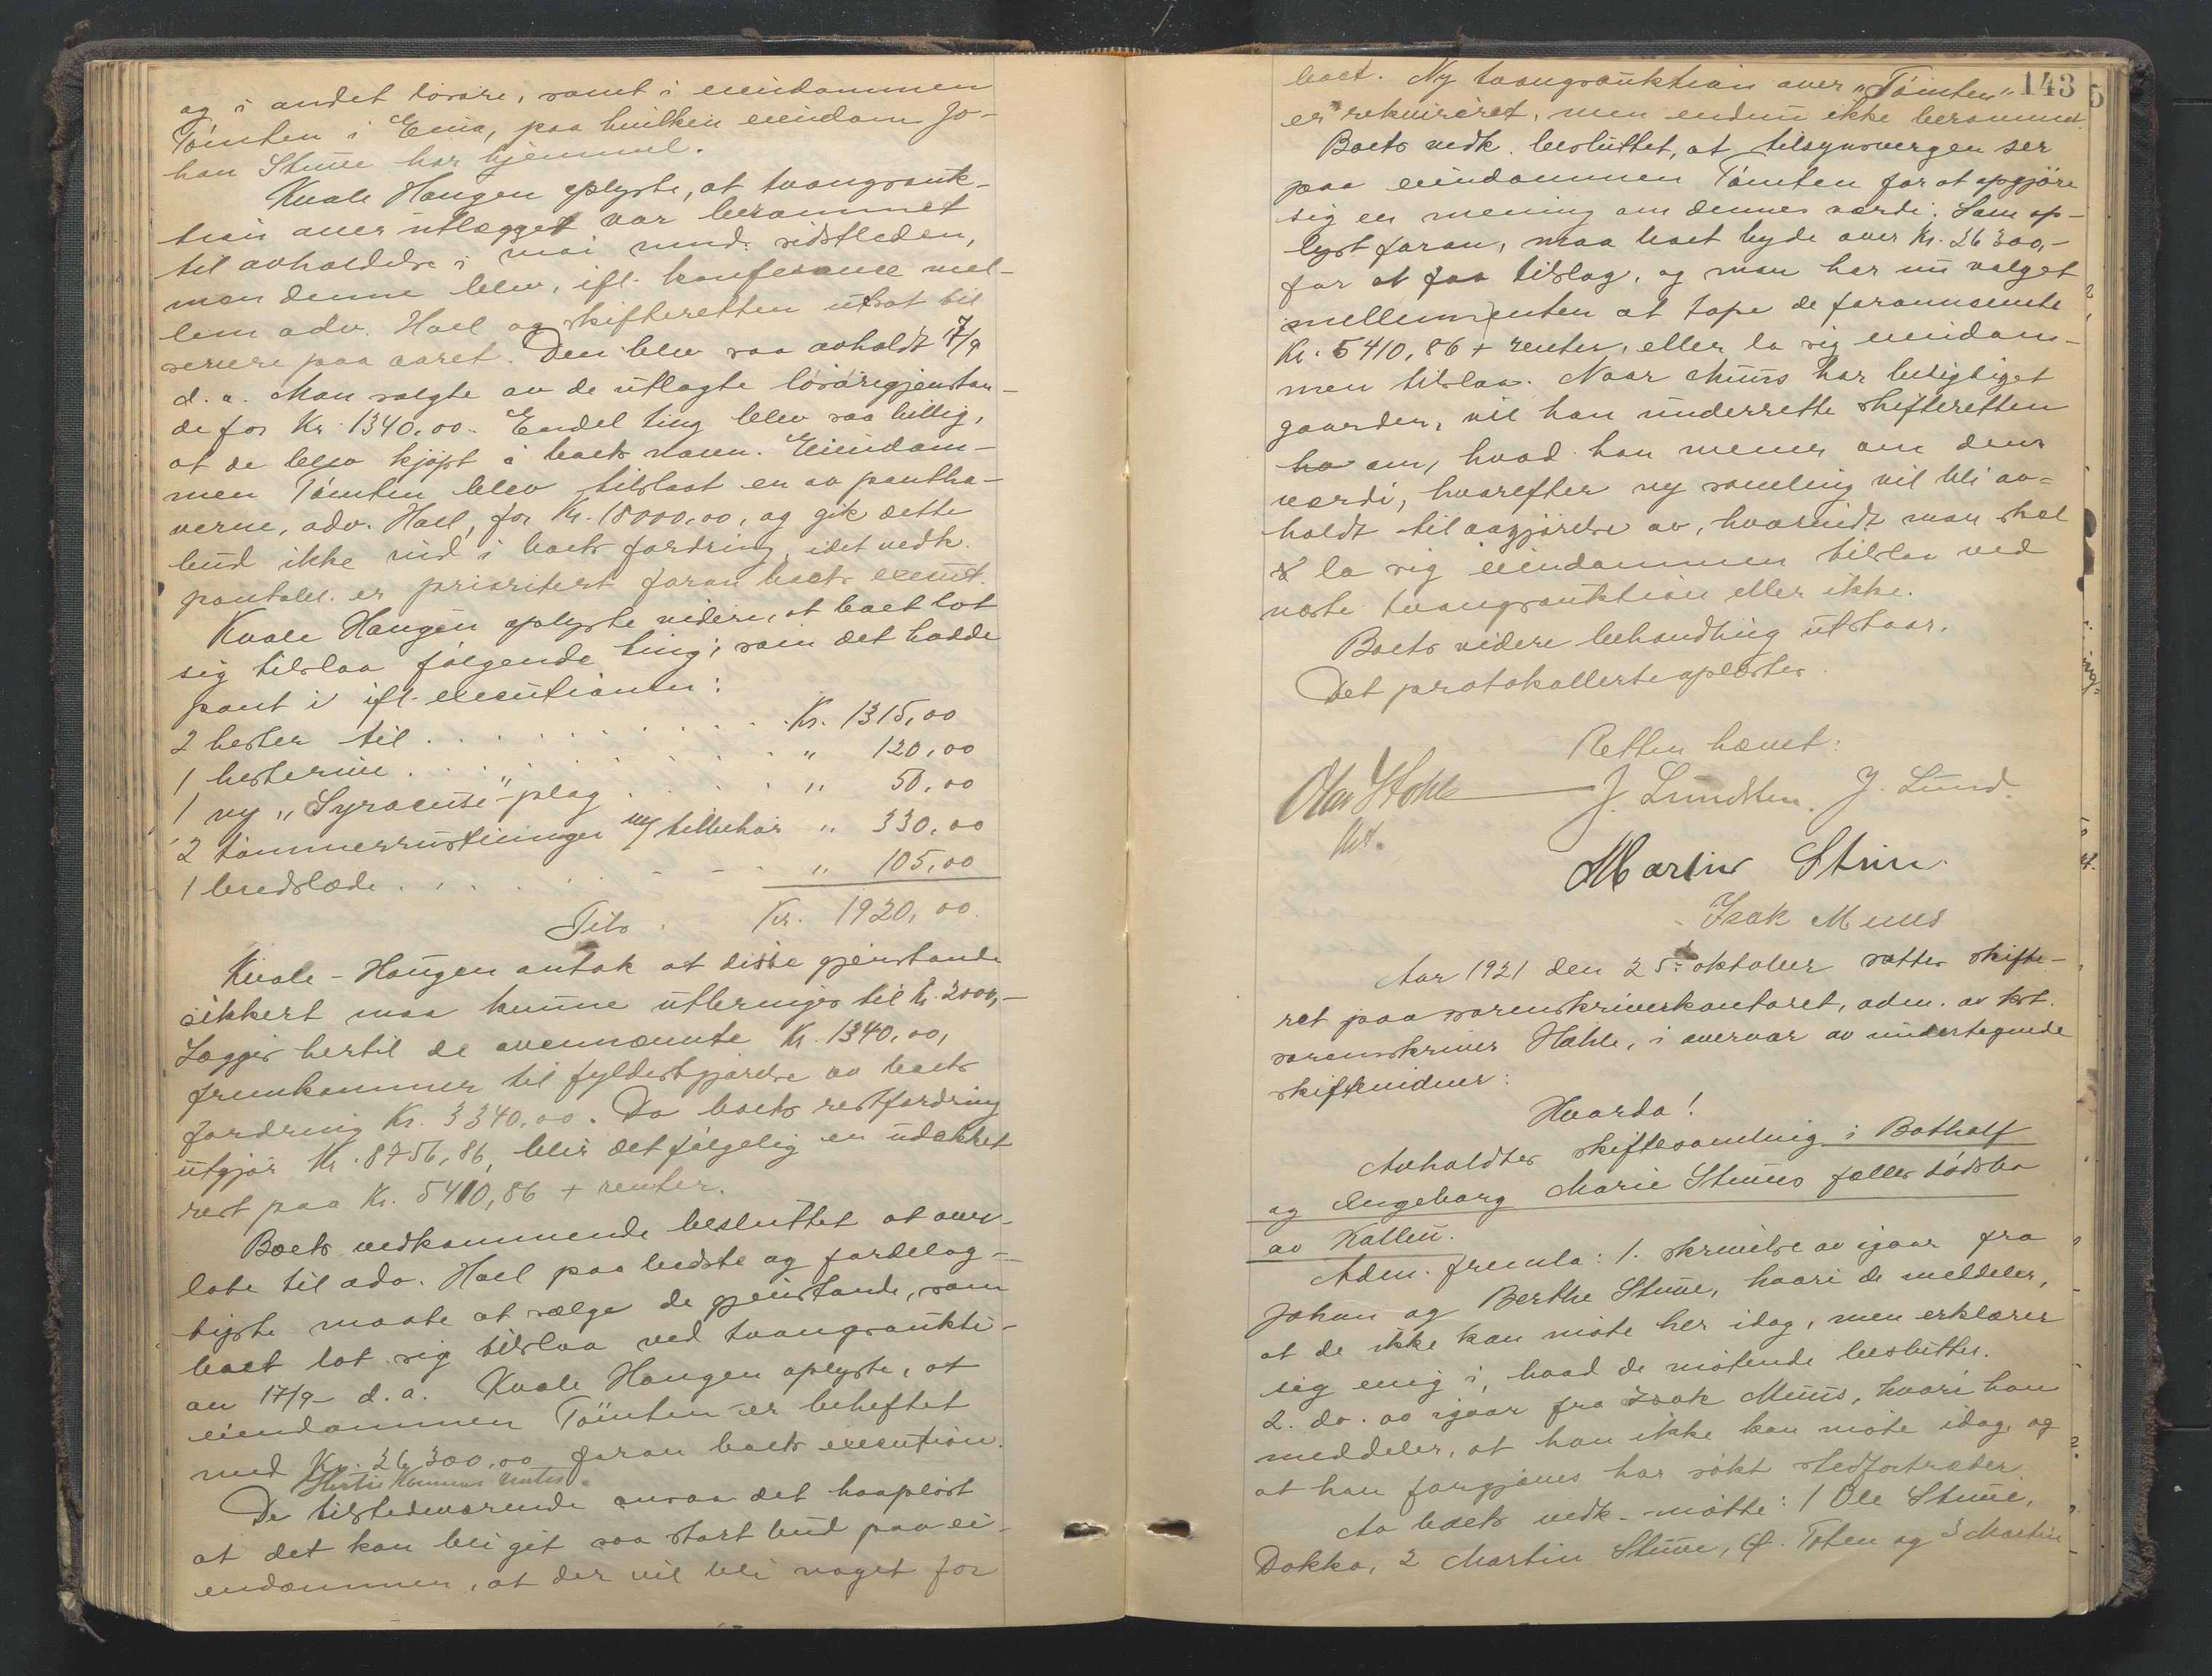 og i andet løsøre, samt i eiendommen
Tømten i Eina, paa hvilken eiendom Jo-
han Stuve har hjemmel.
Kvale Haugen oplyste, at tvangsauk-
tion over utlægget var berammet
til avholdelse i mai mnd. sidstleden,
men denne blev, ifl. konferance mel-
lem adv. Hoel og skifteretten utsat til
senere paa aaret. Den blev saa avholdt 17/9
d. a. Man solgte av de utlagte løsøregjenstan-
de for Kr. 1340,00. Endel ting blev saa billig,
at de blev kjøpt i boets navn. Eiendom-
men Tømten blev tilslaat en av pantha-
verne, adv. Hoel, for Kr. 18000,00, og gik dette
bud ikke ind i boets fordring, idet vedk.
pantobl. er prioritert foran boets execut.
Kvale Haugen oplyste videre, at boet lot
sig tilslaa følgende ting, som det hadde
pant i ifl. executionen:
2 hester til . . . . . . . . . Kr. 1315,00
1 hesterive . . . . . . . . . " 120,00
1 ny "Syracuse"-plog . . . . . " 50,00
2 tømmerrustninger m/ tilbehør " 330,00
1 bredslæde . . . . . . . " 105,00
Tils. Kr. 1920,00.
Kvale-Haugen antok at disse gjenstande
sikkert maa kunne utbringes til Kr. 2000,-
Lægges hertil de ovennævnte Kr. 1340,00,
fremkommer til fyldestgjørelse av boets
fordring Kr. 3340,00. Da boets restfordring
utgjør Kr. 8756,86, blir det følgelig en udækket
rest paa Kr. 5410,86 + renter.
Boets vedkommende besluttet at over-
late til adv. Hoel paa bedste og fordelag-
tigste maate at sælge de gjenstande, som
boet lot sig tilslaa ved tvangsaukti-
on 17/9 d. a. Kvale Haugen oplyste, at
eiendommen Tömten er beheftet
med Kr. 26 300,00 foran boets execution.
Hertil kommer renter.
De tilstedeværende ansaa det haapløst
at det kan bli git saa stort bud paa ei-
endommen, at der vil bli noget for
143
boet. Ny tvangsauktion over "Tømten"
er rekvireret, men endnu ikke berammet.
Boets vedk. besluttet, at tilsynsvergen ser
paa eiendommen Tømten for at opgjøre
sig en mening om dennes værdi. Som op-
lyst foran, maa boet byde over Kr. 26 300,-
for at faa tilslag, og man har nu valget
mellem enten at tape de forannævnte
Kr. 5410,86 + renter, eller la sig eiendom-
men tilslaa. Naar Muus har besigtiget
gaarden, vil han underrette skifteretten
om, hvad han mener om dens
værdi, hvorefter ny samling vil bli av-
holdt til avgjørelse av, hvorvidt man skal
la sig eiendommen tilslaa ved
næste tvangsauktion eller ikke.
Boets videre behandling utstaar.
Det protokollerte oplæstes.
Retten hævet:
J. Lundsten. J. Lund.
kst.
Martin Stuve
Isak Muus
Aar 1921 den 25. oktober sattes skifte-
ret paa sorenskriverkontoret, adm. av kst.
sorenskriver Hohle, i overvær av undertegnede
skiftevidner:
Hvorda!
Avholdtes skiftesamling i Botholf
og Engeborg Marie Stuves fælles dødsbo
av Kolbu.
Adm. fremla: 1. skrivelse av igaar fra
Johan og Berthe Stuve, hvori de meddeler,
at de ikke kan møte her idag, men erklærer
sig enig i, hvad de møtende beslutter.
2. do. av igaar fra Isak Muus, hvori han
meddeler, at han ikke kan møte idag, og
at han forgjæves har søkt stedfortræder.
Av boets vedk. møtte: 1 Ole Stuve,
Dokka, 2 Martin Stuve, Ø. Toten og 3 Martin